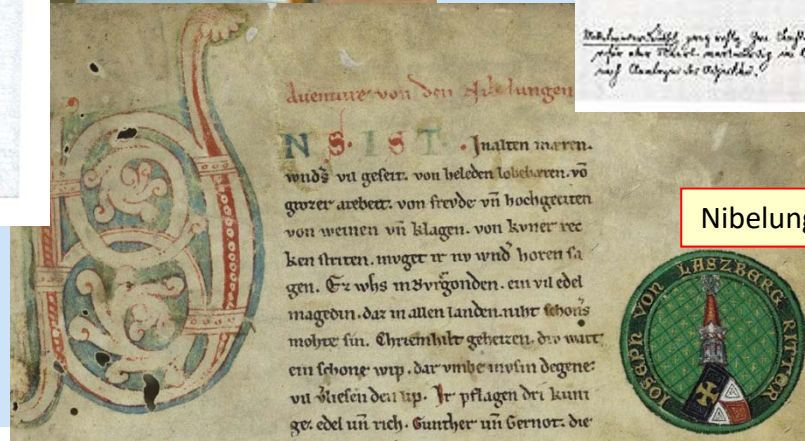 Auenture von den Nibelungen
NS. IST. Jnalten mæren.
wnds vil geseit. von heleden lobebæren. võ
grozer arebeit. von frevde vñ hochgeciten
von weinen vñ klagen. von kvner rec
ken striten. mvget ir nv wnd horen sa
gen. Ez whs inBvrgonden. ein vil edel
magedin. daz in allen landen. niht schons
mohte sin. Chriemhilt geheizen. div wart
ein schone wip. dar vmbe mvsin degene
vil vliesen den lip. Ir pflagen dri kuni
ge. edel vñ rich. Gunther vñ Gernot. die
Nibelung
IOSEPH VON LASZBERG RITTER